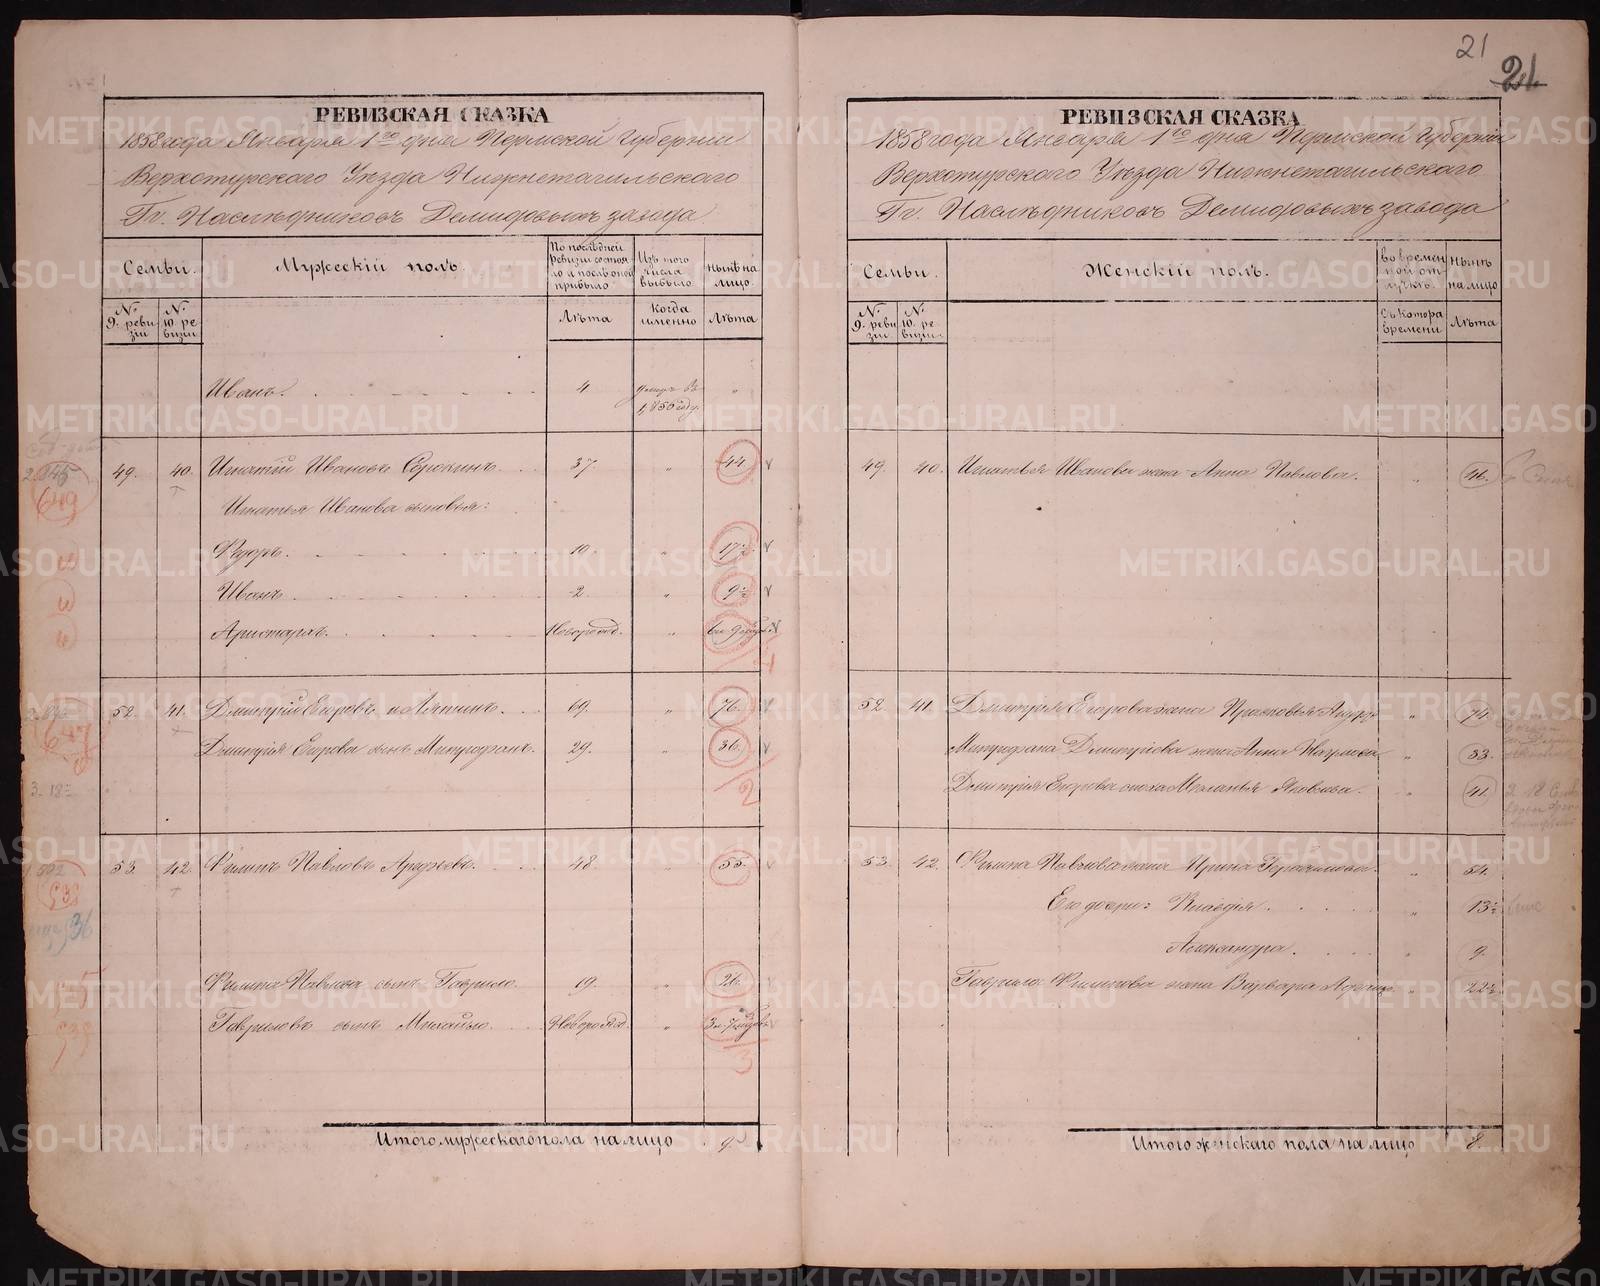 21
21
РЕВИЗСКАЯ СКАЗКА
1858 года Января 1го дня Пермской Губерніи
Верхотурскаго Уѣзда Нижнетагильскаго
Гг. Наслѣдниковъ Демидовыхъ завода
Семьи.
Мужескій полъ.
По послѣдней ревизіи состояло и послѣ оной прибыло
Изъ того числа выбыло
Нынѣ на лицо.
№ 9. ревизіи
№ 10. ревизіи
Лѣта
Когда именно
Лѣта
Иванъ. 4 умеръ въ 1,856 году. "
49. 40. Игнатій Ивановъ Сорокинъ 37. " 44
Игнатья Иванова сыновья:
Ѳедоръ. 10. " 17½
Иванъ 2 " 9½
Аристархъ. Новорожд. "
52. 41. Дмитрій Егоровъ 69. " 76.
Дмитрія Егорова сынъ Митрофанъ. 29. " 36.
53. 42. Филипъ Павловъ 48. " 55.
Филипа Павлова сынъ Гаврило. 19. " 26.
Гавриловъ сынъ Михайло. Новорожд. "
Итого мужескаго пола на лицо 9
РЕВИЗСКАЯ СКАЗКА
1858 года Января 1го дня Пермской Губерніи
Верхотурскаго Уѣзда Нижнетагильскаго
Гг. Наслѣдниковъ Демидовыхъ завода
Семьи.
Женскій полъ.
Во временной отлучкѣ.
Нынѣ на лицо
№ 9. ревизіи
№ 10. ревизіи
Съ котора времени
Лѣта
49. 40. Игнатья Иванова жена Анна Павлова. " 46.
52. 41. Дмитрія Егорова жена Прасковья " 74.
Митрофана Дмитріева жена Анна " 33.
Дмитрія Егорова сноха Меланья Яковлева. " 41.
53. 42. Филипа Павлова жена Ирина Герасимова. " 54.
Его дочери: Клавдія. " 13½
Александра. " 9.
Гаврила Филипова жена Варвара " 22½
Итого женскаго пола на лицо 8.
METRIKI.GASO-URAL.RU